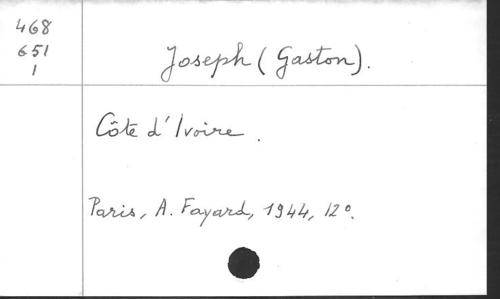 468
651
1
Joseph (Gaston).
Côte d'Ivoire.
Paris, A. Fayard, 1944, 12°.